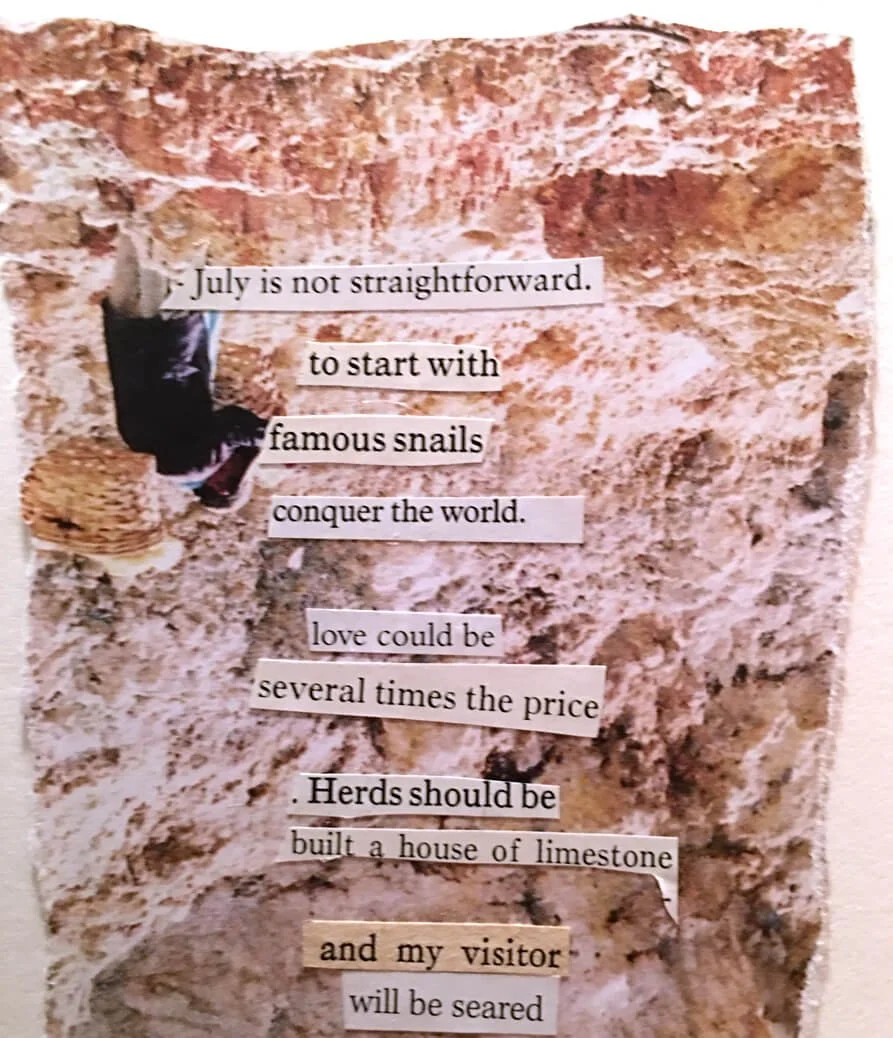 - July is not straightforward.
to start with
famous snails
conquer the world.
love could be
several times the price
. Herds should be
built a house of limestone
and my visitor
will be seared